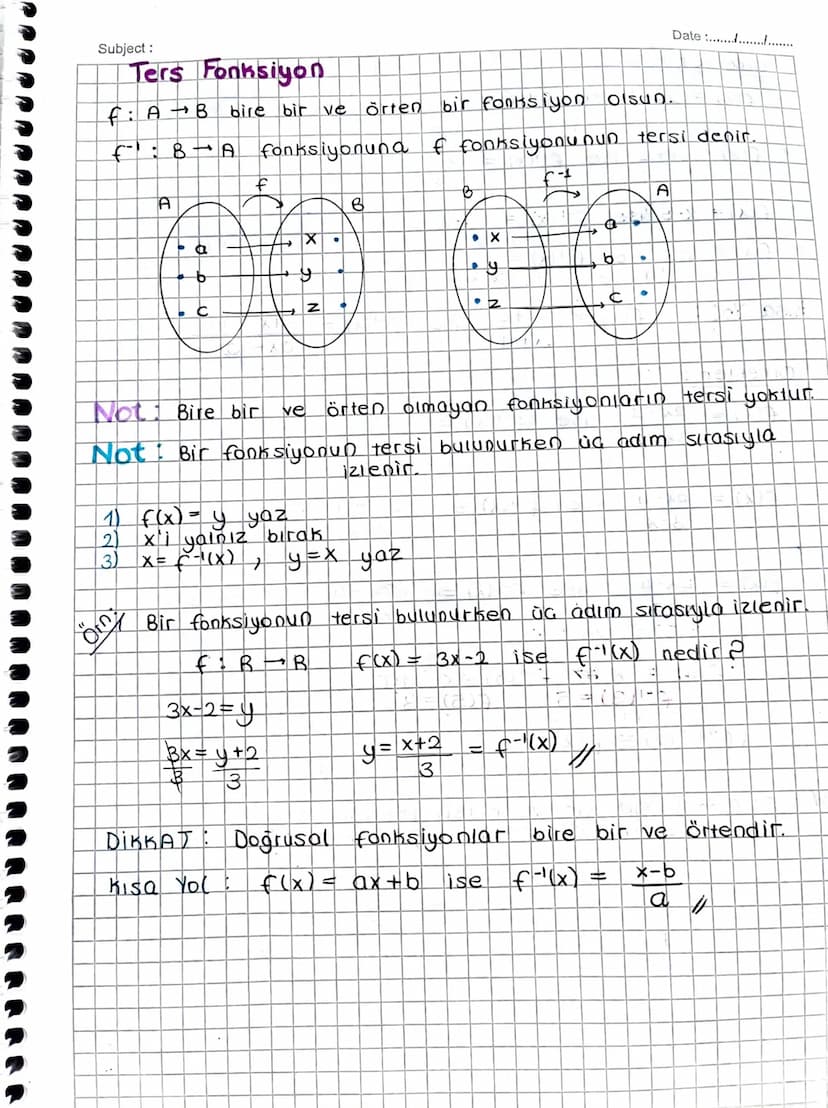 Subject :
Date :......./......./.......
Ters Fonksiyon
f : A → B bire bir ve örten bir fonksiyon olsun.
f⁻¹ : B → A fonksiyonuna f fonksiyonunun tersi denir.
A f B
a x
b y
c z
B f⁻¹ A
x a
y b
z c
Not : Bire bir ve örten olmayan fonksiyonların tersi yoktur.
Not : Bir fonksiyonun tersi bulunurken üç adım sırasıyla
izlenir.
1) f(x) = y yaz
2) x'i yalnız bırak
3) x = f⁻¹(x) , y = x yaz
Örn: Bir fonksiyonun tersi bulunurken üç adım sırasıyla izlenir.
f : R → R f(x) = 3x-2 ise f⁻¹(x) nedir?
3x-2 = y
3x/3 = y+2/3 y = x+2/3 = f⁻¹(x) //
DİKKAT : Doğrusal fonksiyonlar bire bir ve örtendir.
Kısa Yol : f(x) = ax+b ise f⁻¹(x) = x-b/a //